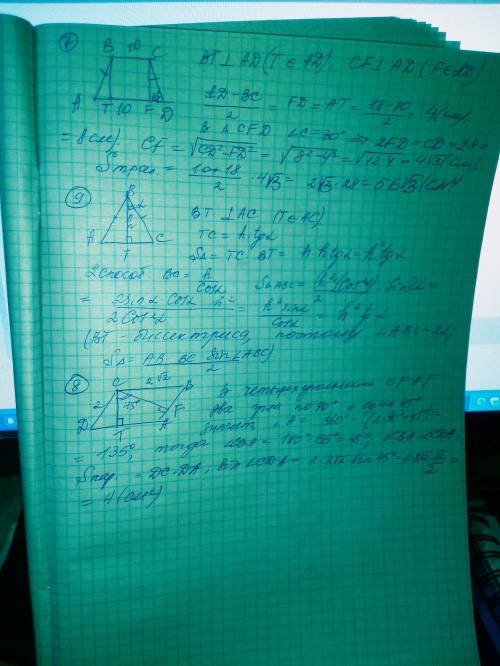 7
B 10 C
A T 10 F D
BT ⊥ AD (T ∈ AD), CF ⊥ AD (F ∈ AD)
AD - BC / 2 = FD = AT = 18-10 / 2 = 4 (см)
В Δ CFD ∠C = 30° ⇒ 2FD = CD = 2·4 =
= 8 (см) CF = √(CD² - FD²) = √(8² - 4²) = √(12·4) = 4√3 (см)
Sтрап. = 10+18 / 2 · 4√3 = 2√3 · 28 = 56√3 (см²)
9
B
α
h
A T C
BT ⊥ AC (T ∈ AC)
TC = h·tgα
SΔ = TC · BT = h·h·tgα = h² tgα
2 способ: BC = h / cosα SΔABC = (h²/cos²α) · sin2α / 2 =
= 2sinα · cosα / 2cos²α · h² = h² sinα / cosα = h² tgα
(BT - биссектриса, поэтому ∠ABC = 2α,
SΔ = AB · BC · sin∠ABC / 2)
8
C 2√2 B
2 45° F
D T A
В четырёхугольнике CFAT
два угла по 90° и один 45°
значит ∠A = 360° - (2·90°+45°) =
= 135°, тогда ∠CBA = 180° - 135° = 45°, ∠CBA = ∠CDA
Sпар. = DC · DA · sin∠CDA = 2 · 2√2 · sin 45° = 4√2 · √2 / 2 =
= 4 (см²)